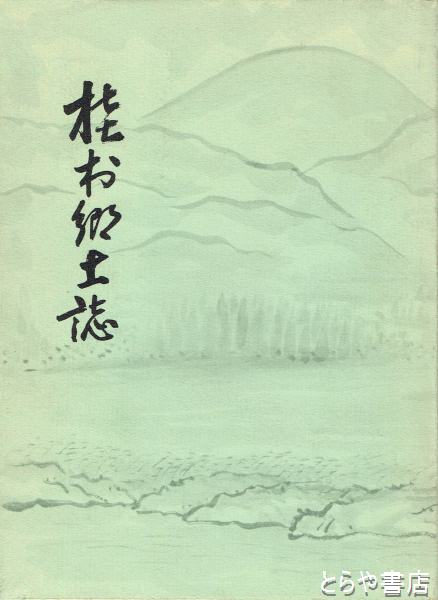 桂村郷土誌
とらや書店